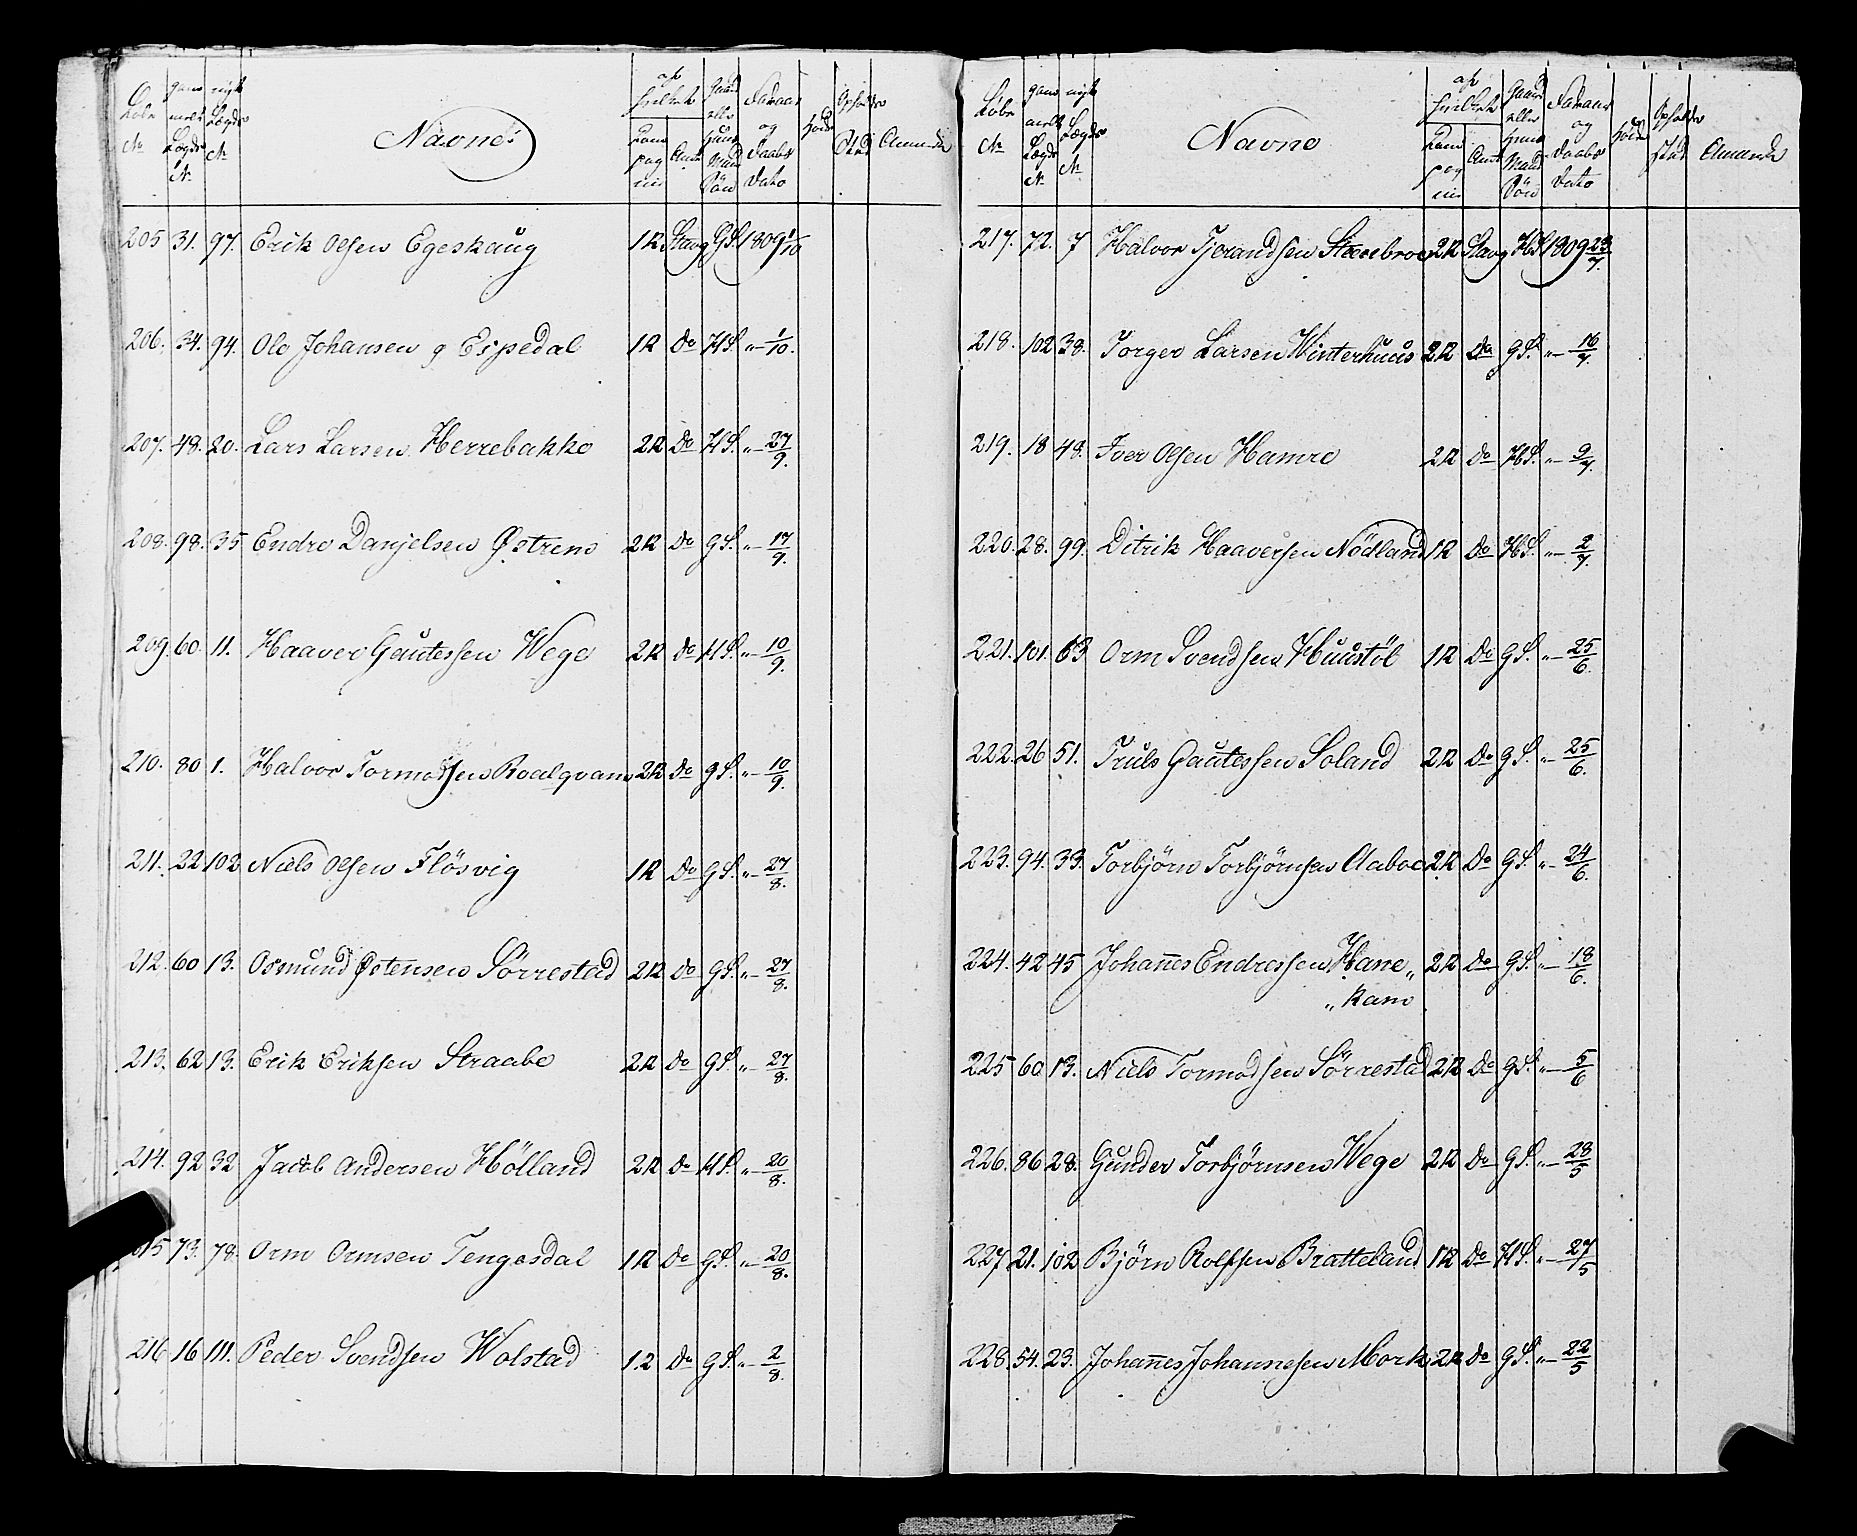 Løbe No gamelt Lægds No nyt Lægds No Navne af hvilket Kompagnie Amt Gaard eller Huusmand Søn Fødaar og Daabs Dato Høide Opholds Stæd Anmærk
205 31. 97. Erik Olsen Egeskaug 1R Stavg GS. 1809 1/10
206. 34. 94. Ole Johansen g Espedal 1R Do HS. „– 1/10.
207. 48. 20. Lars Larsen Herrebakke 2R Do HS. „– 27/9.
208. 98. 35 Endre Danjelsen Østrem 2R Do GS. „– 17/9.
209. 60. 11. Haaver Gautessen Wege 2R Do HS. „– 10/9.
210. 80 1. Halvor Tormodsen Roalqvam 2R Do GS. „– 10/9.
211. 22 102 Niels Olsen Flösvig 1R Do GS. „– 27/8.
212. 60 13. Osmund Østensen Sörrestad 2R Do GS. „– 27/8.
213. 62 13. Erik Eriksen Straabe 2R Do GS. „– 27/8.
214. 92 32 Jacob Andersen Hölland 2R Do HS. „– 20/8.
215 73. 78. Orm Ormsen Tengesdal 1R Do GS. „– 20/8.
216 16 111. Peder Svendsen Wolstad 1.2 Do GS. „– 2/8.
Løbe No gamelt Lægds No nyt Lægds No Navne af hvilket Kompagnie Amt Gaard eller Huusmand Søn Fødaar og Daabs Dato Høide Opholds stæd Anmærk
217. 72. 7 Halvor Tjerandsen Steenebroe 2R Stavg HS 1809 23/7.
218. 102 38. Torger Larsen Winterhuus 2R Do GS. „– 16/7.
219. 18 48. Iver Olsen Hamre 2R Do HS. „– 9/7.
220. 28. 99. Ditrik Haaversen Nödland 1R Do HS. „– 2/7.
221. 101. 63 Orm Svendsen Huustöl 1R Do GS. „– 25/6.
222. 26 51. Truls Gautessen Soland 2R Do GS. „– 25/6.
223. 94. 33. Torbjörn Torbjörnsen Aaboe 2R Do GS. „– 24/6.
224. 42 45 Johannes Endressen Hane„ 2R Do GS. „– 18/6.
„kam
225 60 13. Niels Tormodsen Sörrestad 2R Do GS. „– 5/6
226. 86 28. Gunder Torbjörnsen Wege 2R Do GS. „– 28/5
227 21. 102 Björn Rolfsen Bratteland 1R Do HS. „– 27/5
228. 54. 23. Johannes Johannesen Mork 2R Do GS. „– 22/5